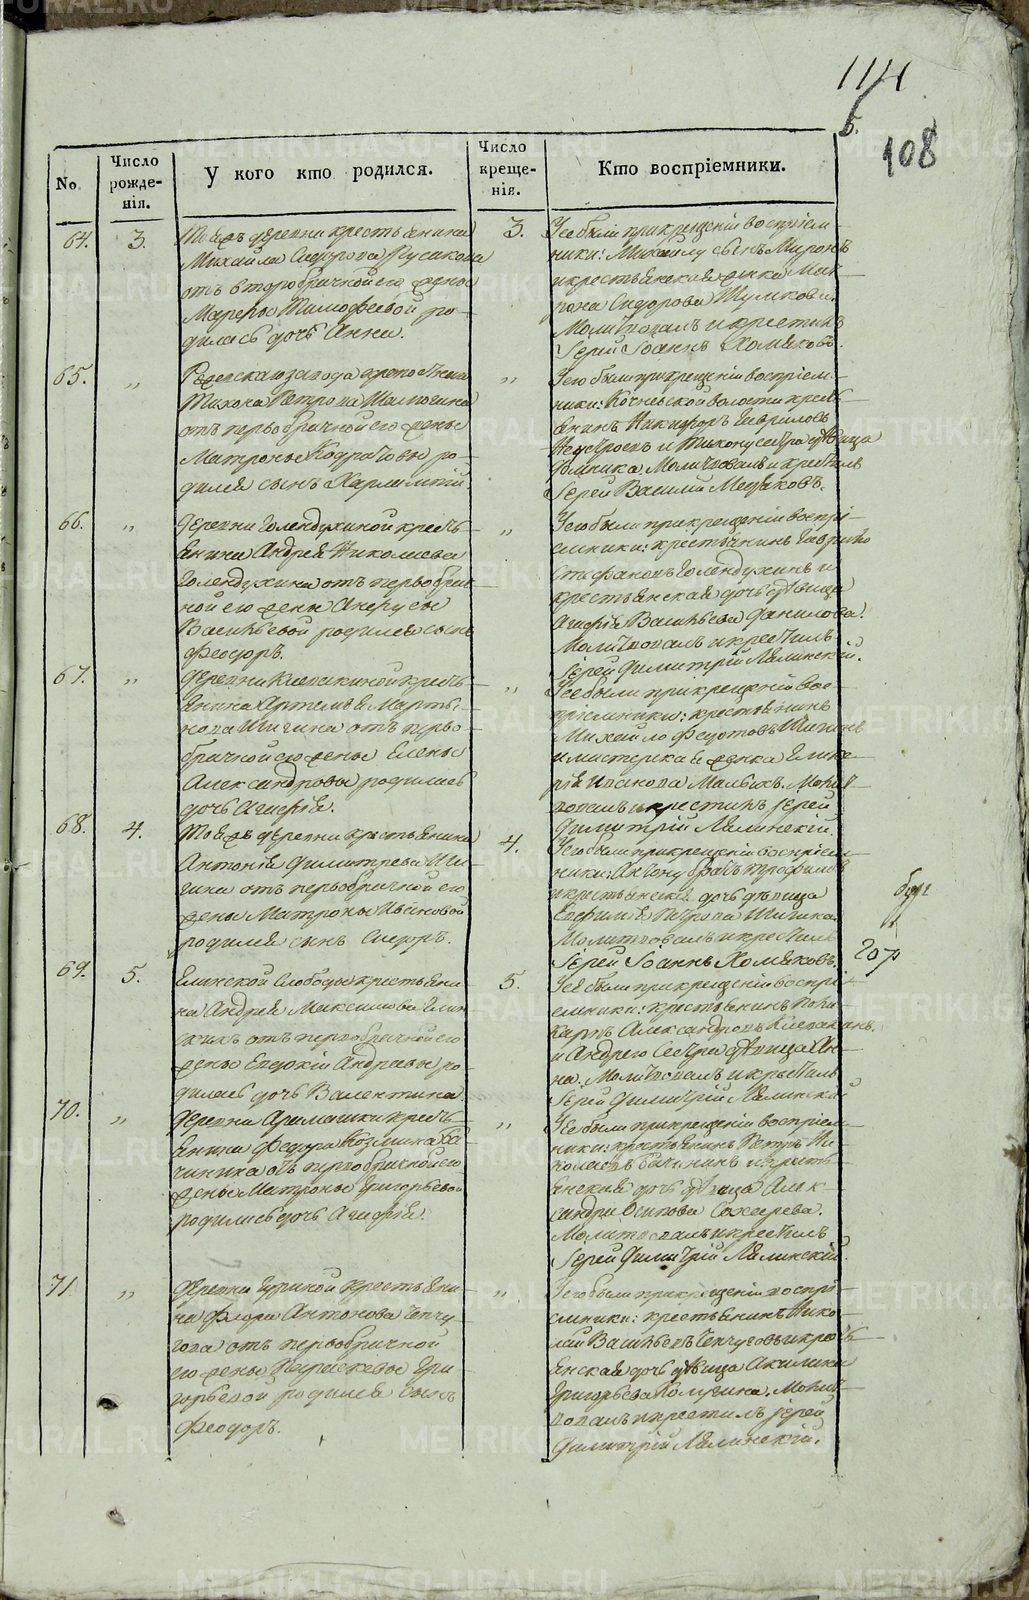 114
Б.
108
No
Число рожде-нія.
У кого кто родился.
Число креще-нія.
Кто воспріемники.
64. 3.
Тоежъ деревни крестьянина
Михайла Сидорова Русакова
отъ второбрачной его жены
Марѳы Тимофеевой ро-
дилась дочь Анна.
3.
Ее были при крещеніи воспріем-
ники: Михаилу сынъ Миронъ
и крестьянская женка Мат-
рона Сидорова
Молитвовалъ и крестилъ
Іерей Іоаннъ Хомяковъ.
65. „
Режевскаго завода
Тихона Петрова
отъ первобрачной его жены
Матроны Кодратовы ро-
дился сынъ Харлампій
„
Его были при крещеніи воспріем-
ники: волости крест-
янинъ Никифоръ Гавриловъ
и Тихону сестра дѣвица
Домника. Молитвовалъ и крестилъ
Іерей Василій
66. „
Деревни Голендухиной крест-
янина Андрея Николаева
Голендухина отъ первобрач-
ной его жены
Васильевой родился сынъ
Феодоръ.
„
Его были при крещеніи воспрі-
емники: крестьянинъ Гаврило
Стефановъ Голендухинъ и
крестьянская дочь дѣвица
Агафія Васильева Данилова.
Молитвовалъ и крестилъ
Іерей Димитрій Лялинскій.
67. „
Деревни Клевакиной крест-
янина Артемья Марты-
нова Шигина отъ перво-
брачной его жены Елены
Александровы родилась
дочь Агафія.
„
Ее были при крещеніи вос-
пріемники: крестьянинъ
Михайло Федотовъ
и мастерская женка
Иванова Малыхъ. Молит-
вовалъ и крестилъ Іерей
Димитрій Лялинскій.
68. 4.
Тоежъ деревни крестьянина
Антонія Димитрева Ши-
гина отъ первобрачной его
жены Матроны Ивановой
родился сынъ Сидоръ.
4.
Его были при крещеніи воспріем-
ники: Антону братъ Трофимъ
и крестьянская дочь дѣвица
Евфимія Петрова Шигина
Молитвовалъ и крестилъ
Іерей Іоаннъ Хомяковъ.
69. 5.
слободы крестьяни-
на Андрея Максимова
отъ первобрачной его
жены Евдокіи Андреевы ро-
дилась дочь Валентина.
5.
Ея были при крещеніи воспрі-
емники: крестьянинъ Поли-
карпъ Александровъ Клевакинъ.
и Андрею сестра дѣвица Ан-
на. Молитвовалъ и крестилъ
Іерей Димитрій Лялинскій
70. „
Деревни Арамашки крест-
янина Федора Козмина Ба-
чинина отъ первобрачной его
жены Матроны Григорьевой
родилась дочь Агафія.
„
Ее были при крещеніи воспріем-
ники: крестьянинъ Петръ Ни-
колаевъ Бачининъ и кресть-
янская дочь дѣвица Алек-
сандра Осипова
Молитвовалъ и крестилъ
Іерей Димитрій Лялинскій.
71 „
Деревни крестьяни-
на Флора Антонова Чепчу-
гова отъ первобрачной
его жены Параскевы Гри-
горьевой родился сынъ
Феодоръ.
„
Его были при крещеніи воспрі-
емники: крестьянинъ Нико-
лай Васильевъ Чепчуговъ и крест-
янская дочь дѣвица Акилина
Григорьева Молит-
вовалъ и крестилъ Іерей
Димитрій Лялинскій.